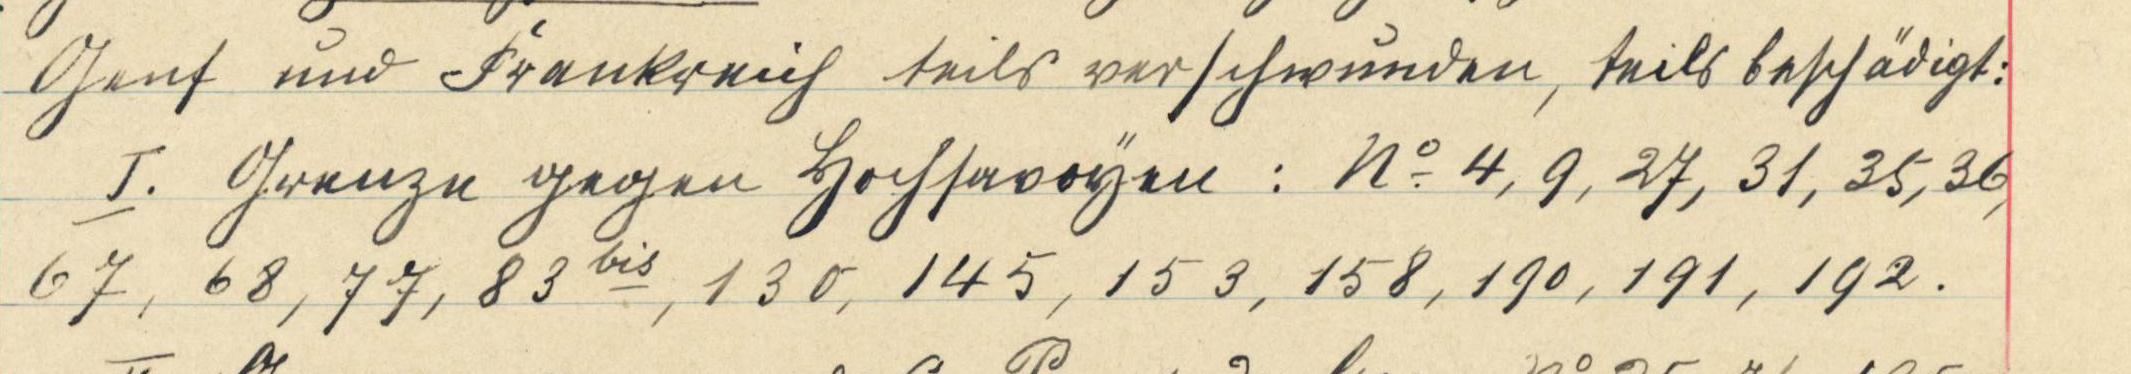 Genf und Frankreich teils verschwunden, teils beschädigt:
I. Grenze gegen Hochsavoÿen : Nº 4, 9, 27, 31, 35, 36,
67, 68, 77, 83 bis, 130, 145, 153, 158, 190, 191, 192.